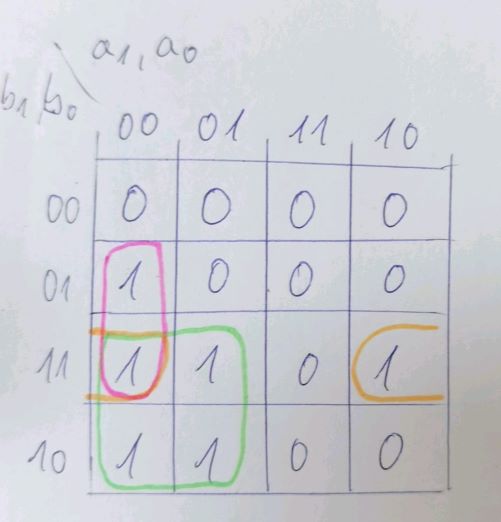 a1, a0
b1, b0
00 01 11 10
00 0 0 0 0
01 1 0 0 0
11 1 1 0 1
10 1 1 0 0